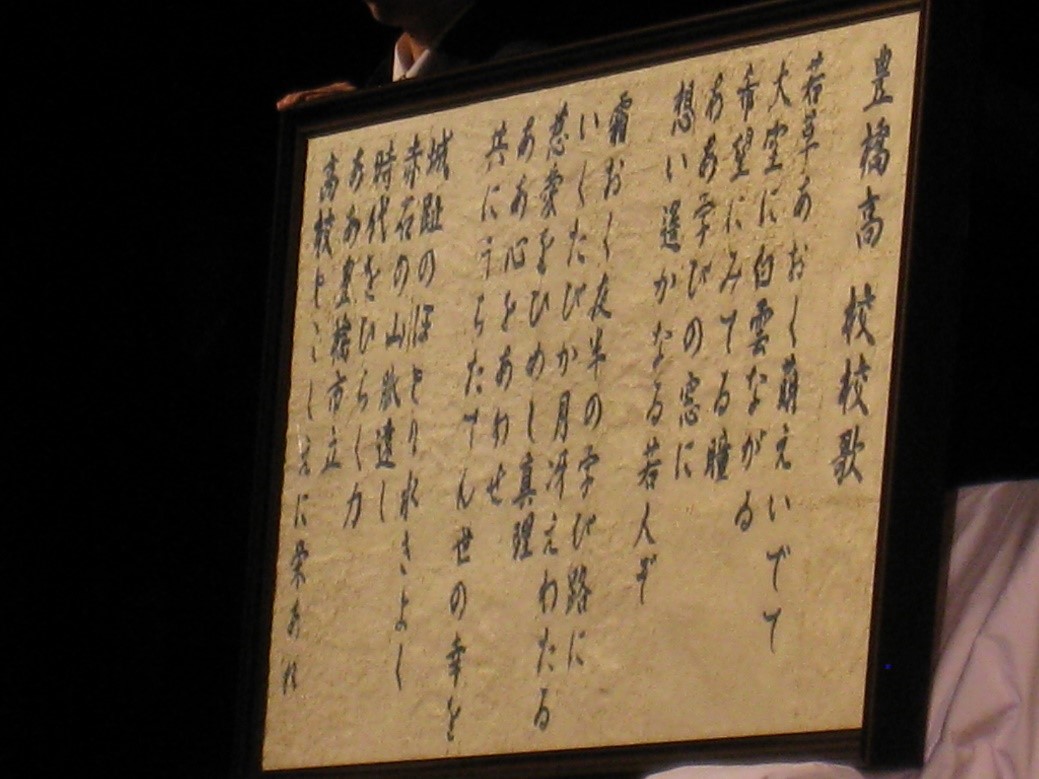 豊橋高校校歌
若草あおく萌えいでて
大空に白雲ながる
希望にみてる瞳
ああ学びの窓に
想い遥かなる若人ぞ
霜おく夜半の学び路に
いくたびか月冴えわたる
慈愛をひめし真理
ああ心をあわせ
共にうちたてん世の幸を
城趾のほとり水きよく
赤石の山脈遠し
時代をひらく力
ああ豊橋市立
高校とこしえに栄あれ